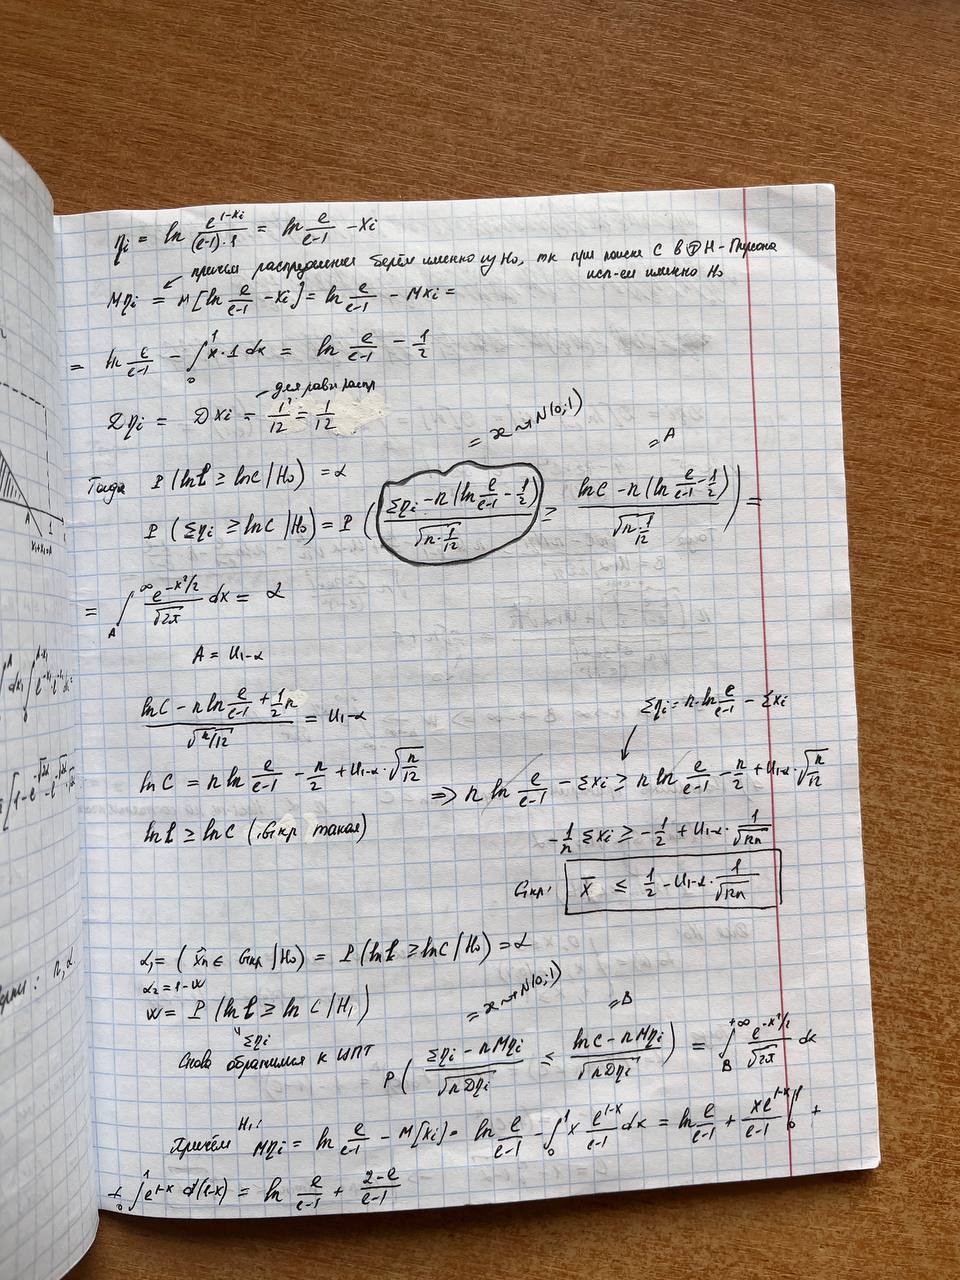 ηi = ln e^(1-xi)/((e-1)·1) = ln e/(e-1) - xi
причём распределения берём именно из H₀, тк при поиске C в Ⓣ Н-Пирсона
исп-ем именно H₀
Mηi = M[ln e/(e-1) - xi] = ln e/(e-1) - Mxi =
= ln e/(e-1) - ∫₀¹ x·1 dx = ln e/(e-1) - 1/2
для равн распр
Dηi = Dxi = 1²/12 = 1/12
= æ ~> N(0;1)
= A
Тогда P(ln L ≥ ln C | H₀) = α
P(Σηi ≥ ln C | H₀) = P( (Σηi - n(ln e/(e-1) - 1/2))/√(n·1/12) ≥ (ln C - n(ln e/(e-1) - 1/2))/√(n·1/12) ) =
= ∫_A^∞ e^(-x²/2)/√(2π) dx = α
A = u₁₋α
(ln C - n ln e/(e-1) + 1/2 n)/√(n/12) = u₁₋α
Σηi = n·ln e/(e-1) - Σxi
ln C = n ln e/(e-1) - n/2 + u₁₋α·√(n/12)
=> n ln e/(e-1) - Σxi ≥ n ln e/(e-1) - n/2 + u₁₋α·√(n/12)
ln L ≥ ln C (Gкр такая)
-1/n Σxi ≥ -1/2 + u₁₋α·1/√(12n)
Gкр: x̄ ≤ 1/2 - u₁₋α·1/√(12n)
α₁ = (x⃗n ∈ Gкр | H₀) = P(ln L ≥ ln C | H₀) = α
α₂ = 1-W
W = P(ln L ≥ ln C | H₁)
Σηi
= æ ~> N(0;1)
= B
Снова обратимся к ЦПТ
P( (Σηi - nMηi)/√(nDηi) ≤ (ln C - nMηi)/√(nDηi) ) = ∫_B^+∞ e^(-x²/2)/√(2π) dx
H₁:
Причём Mηi = ln e/(e-1) - M[xi] = ln e/(e-1) - ∫₀¹ x e^(1-x)/(e-1) dx = ln e/(e-1) + xe^(1-x)/(e-1) |₀¹ +
+ ∫₀¹ e^(1-x) d(1-x) = ln e/(e-1) + (2-e)/(e-1)